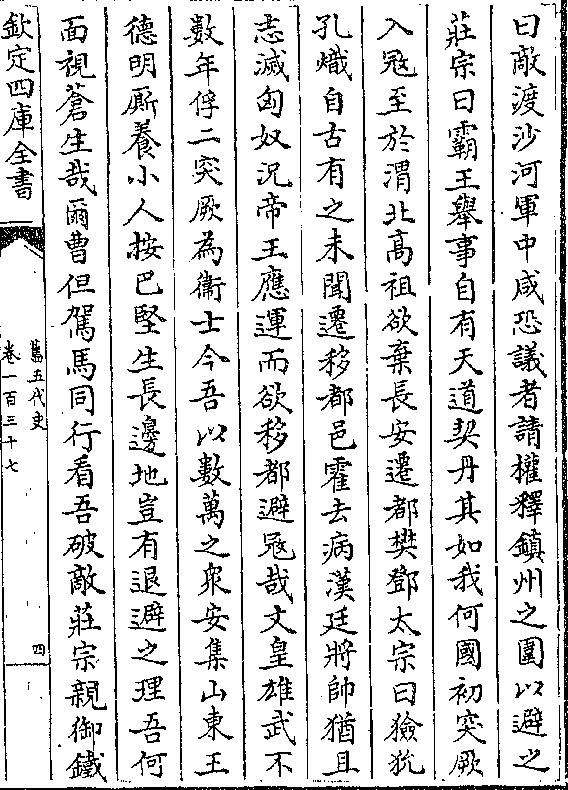 曰敵渡沙河軍中咸恐議者請權釋鎮州之圍以避之
莊宗曰霸王舉事自有天道契丹其如我何國初突厥
入宼至於渭北髙祖欲棄長安遷都樊鄧太宗曰獫狁
孔熾自古有之未聞遷移都邑霍去病漢廷將帥猶且
志滅匈奴况帝王應運而欲移都避宼哉文皇雄武不
數年俘二突厥為衞士今吾以數萬之衆安集山東王
德明厮養小人按巴堅生長邊地豈有退避之理吾何
面視蒼生哉爾曹但駕馬同行看吾破敵莊宗親御鐵
欽定四庫全書
舊五代史
卷一百三十七
四